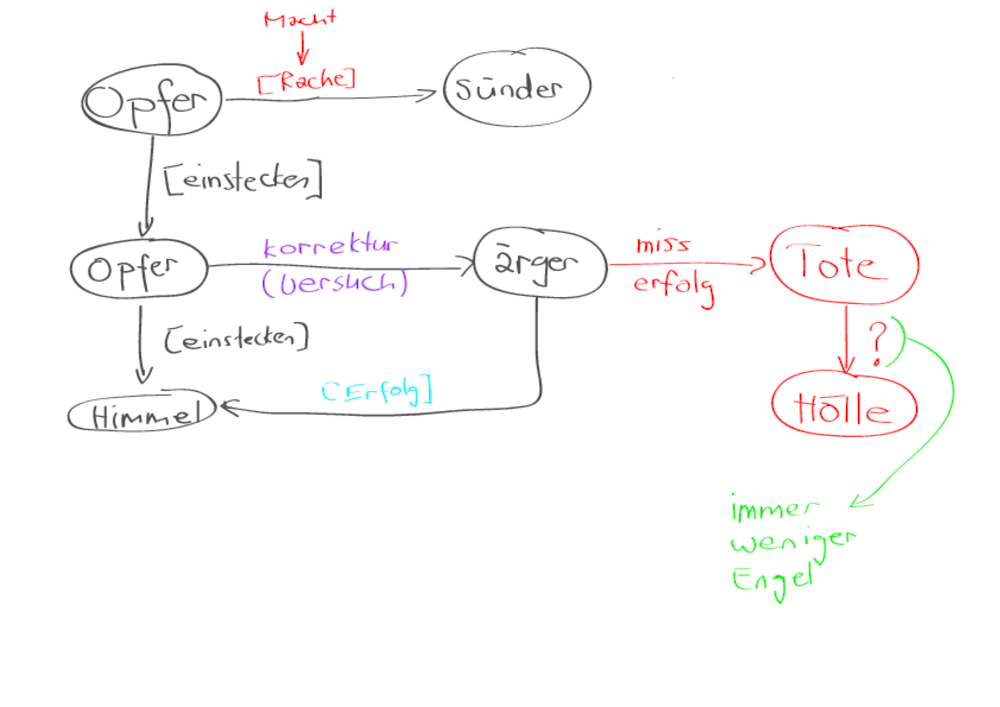 Macht
[Rache]
Opfer
Sünder
[einstecken]
Opfer
korrektur
(versuch)
ärger
miss
erfolg
Tote
[einstecken]
?
Himmel
[Erfolg]
Hölle
immer
weniger
Engel